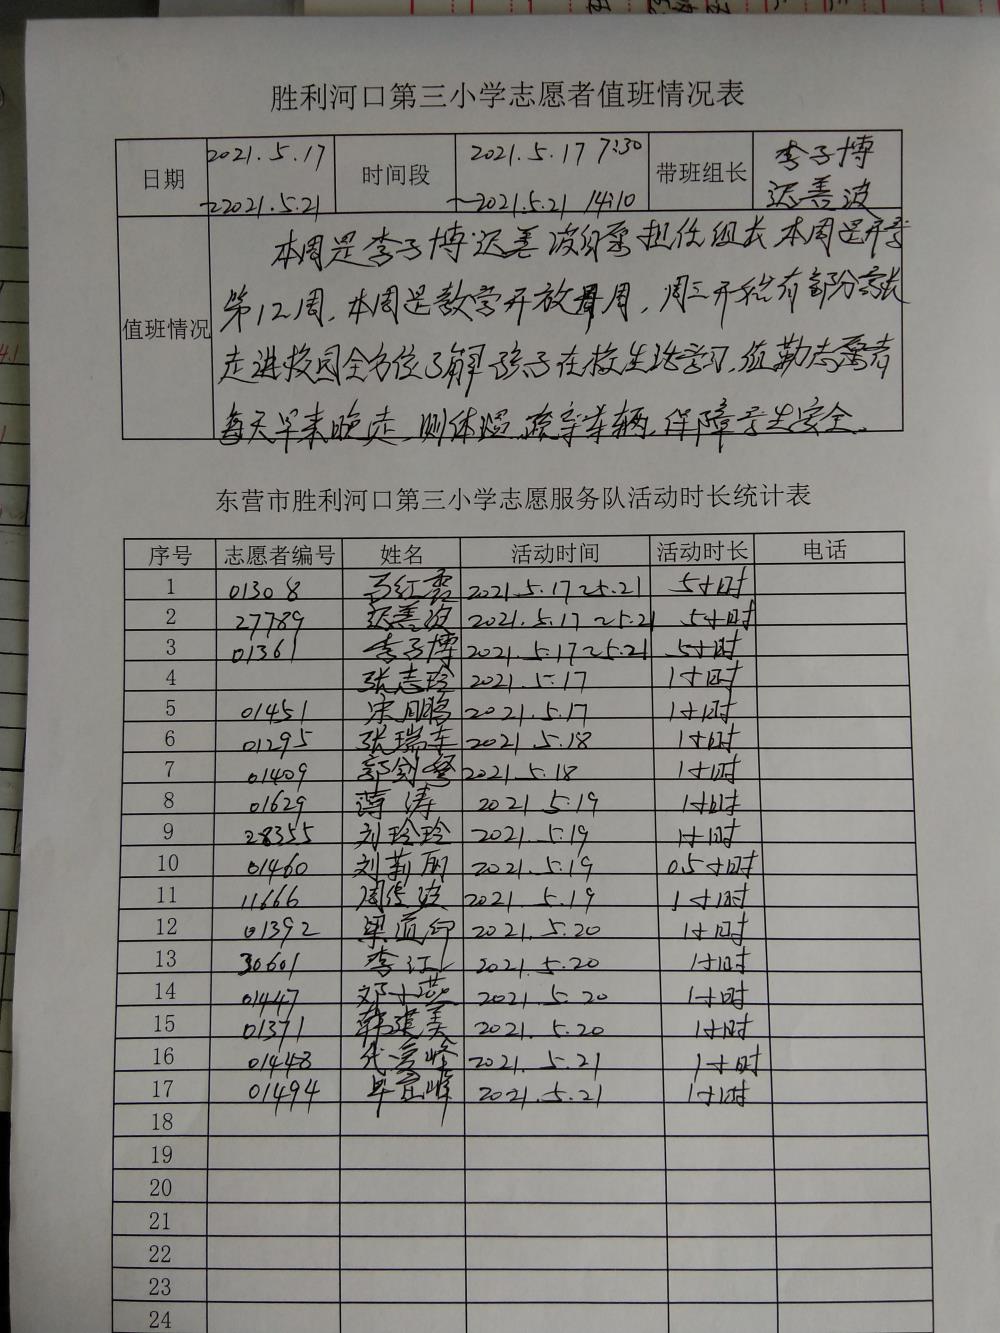 胜利河口第三小学志愿者值班情况表
日期 2021.5.17 ~2021.5.21 时间段 2021.5.17 7:30 —2021.5.21 14:10 带班组长 李子博 迟善波
值班情况
本周是李子博迟善波担任组长本周是开学
第12周,本周是数学开放周,周三开始有部分家长
走进校园全方位了解孩子在校生活学习,值勤志愿者
每天早来晚走,测体温,疏导车辆,保障学生安全。
东营市胜利河口第三小学志愿服务队活动时长统计表
序号 志愿者编号 姓名 活动时间 活动时长 电话
1 01308 2021.5.17~5.21 5小时
2 27789 迟善波 2021.5.17~5.21 5小时
3 01361 李子博 2021.5.17~5.21 5小时
4 张志玲 2021.5.17 1小时
5 01451 宋月鹏 2021.5.17 1小时
6 01295 张瑞 2021.5.18 1小时
7 01409 郭剑 2021.5.18 1小时
8 01629 涛 2021.5.19 1小时
9 28355 刘玲玲 2021.5.19 1小时
10 01460 刘莉丽 2021.5.19 0.5小时
11 11666 周 2021.5.19 1小时
12 01392 梁 2021.5.20 1小时
13 30601 李江 2021.5.20 1小时
14 01447 邓小燕 2021.5.20 1小时
15 01371 韩建美 2021.5.20 1小时
16 01448 峰 2021.5.21 1小时
17 01494 峰 2021.5.21 1小时
18
19
20
21
22
23
24